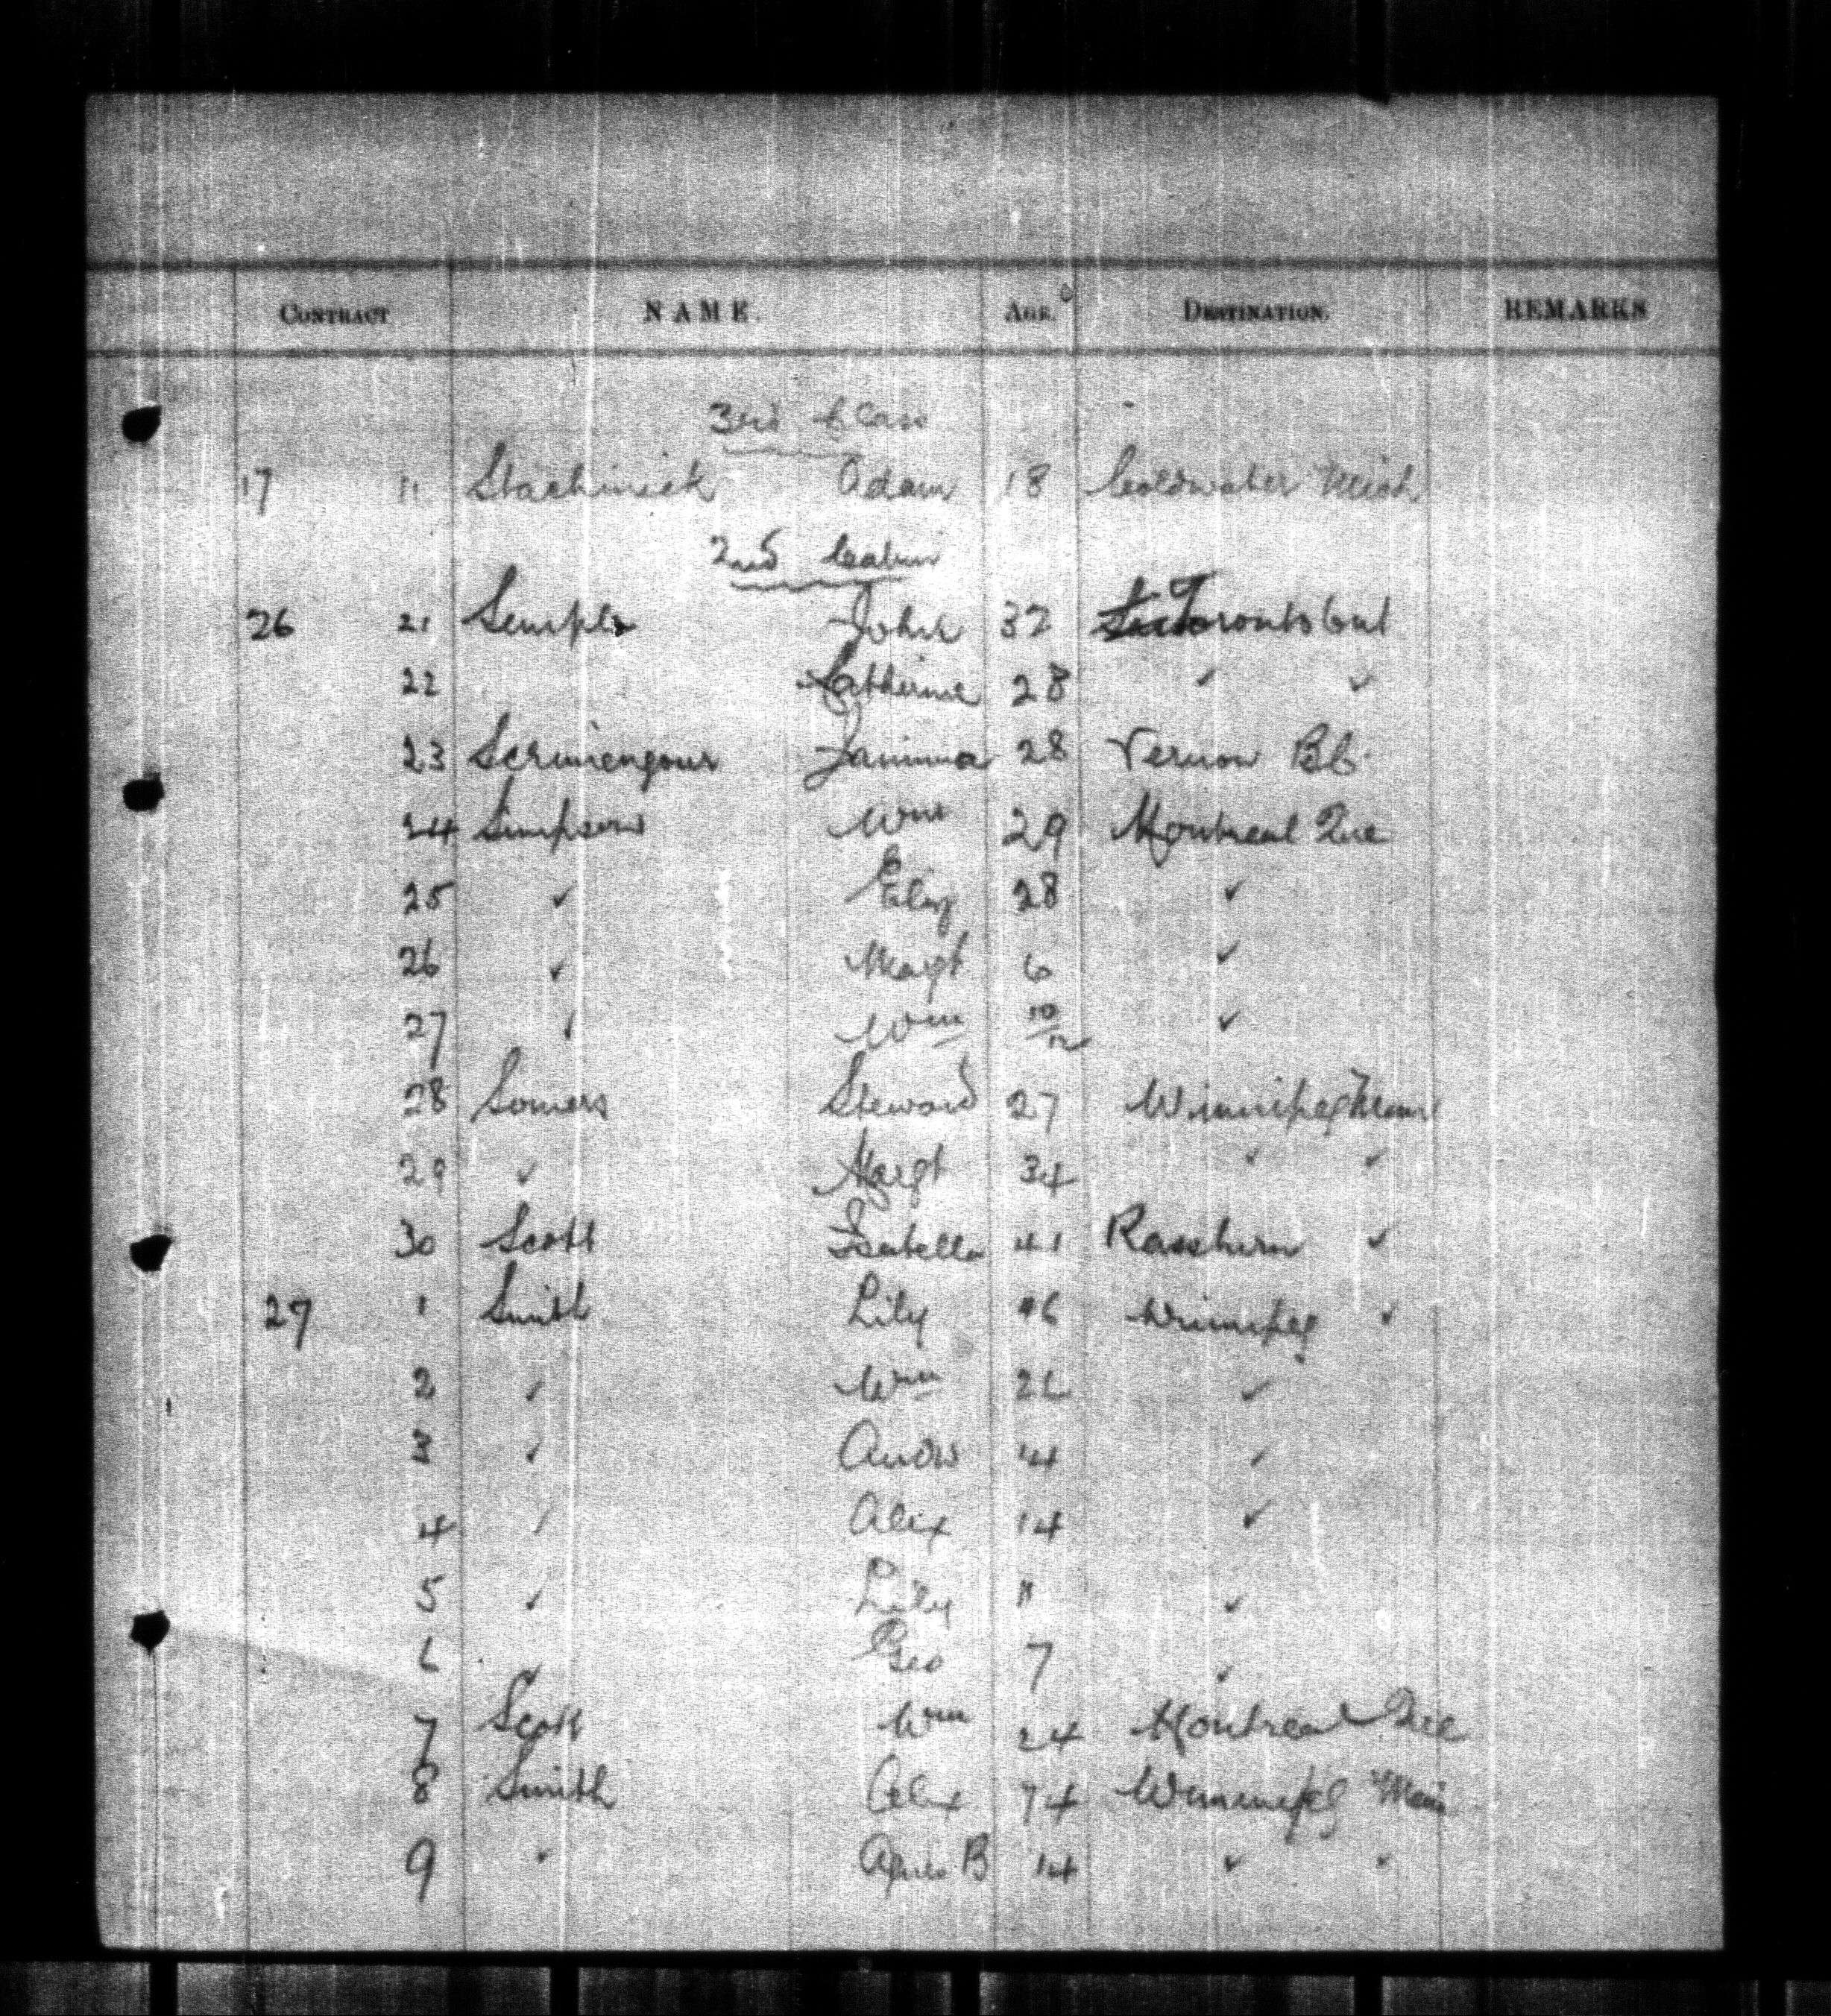 CONTRACT NAME. AGE. DESTINATION. REMARKS
3rd Class
17 11 Stachinick Adam 18 Coldwater Mich
2nd Cabin
26 21 Semple John 32 Toronto Ont
22 Catherine 28 ✓ ✓
23 Scrimengour Jamima 28 Vernon B.C.
24 Simpson Wm 29 Montreal Que
25 ✓ Eliz 28 ✓
26 ✓ Margt 6 ✓
27 ✓ Wm 10/12 ✓
28 Somers Steward 27 Winnipeg Man
29 ✓ Margt 34 ✓ ✓
30 Scott Isabella 41 ✓
27 1 Smith Lily 46 Winnipeg ✓
2 ✓ Wm ✓
3 ✓ Andw ✓
4 ✓ Alex 14 ✓
5 ✓ Lily 11 ✓
6 ✓ Geo 7 ✓
7 Scott Wm 24 Montreal Que
8 Smith Alex 74 Winnipeg Man
9 ✓ Agnes B 14 ✓ ✓